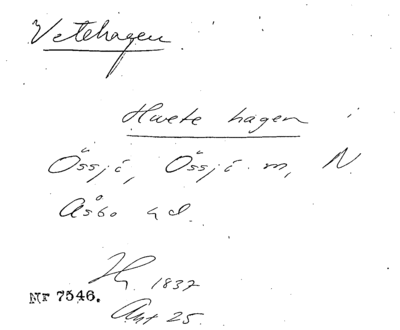 Vetehagen
Hwete hagen i
Össjö, Össjö m, N
Åsbo hd.
H 1837
Akt 25.
Nr 7546.